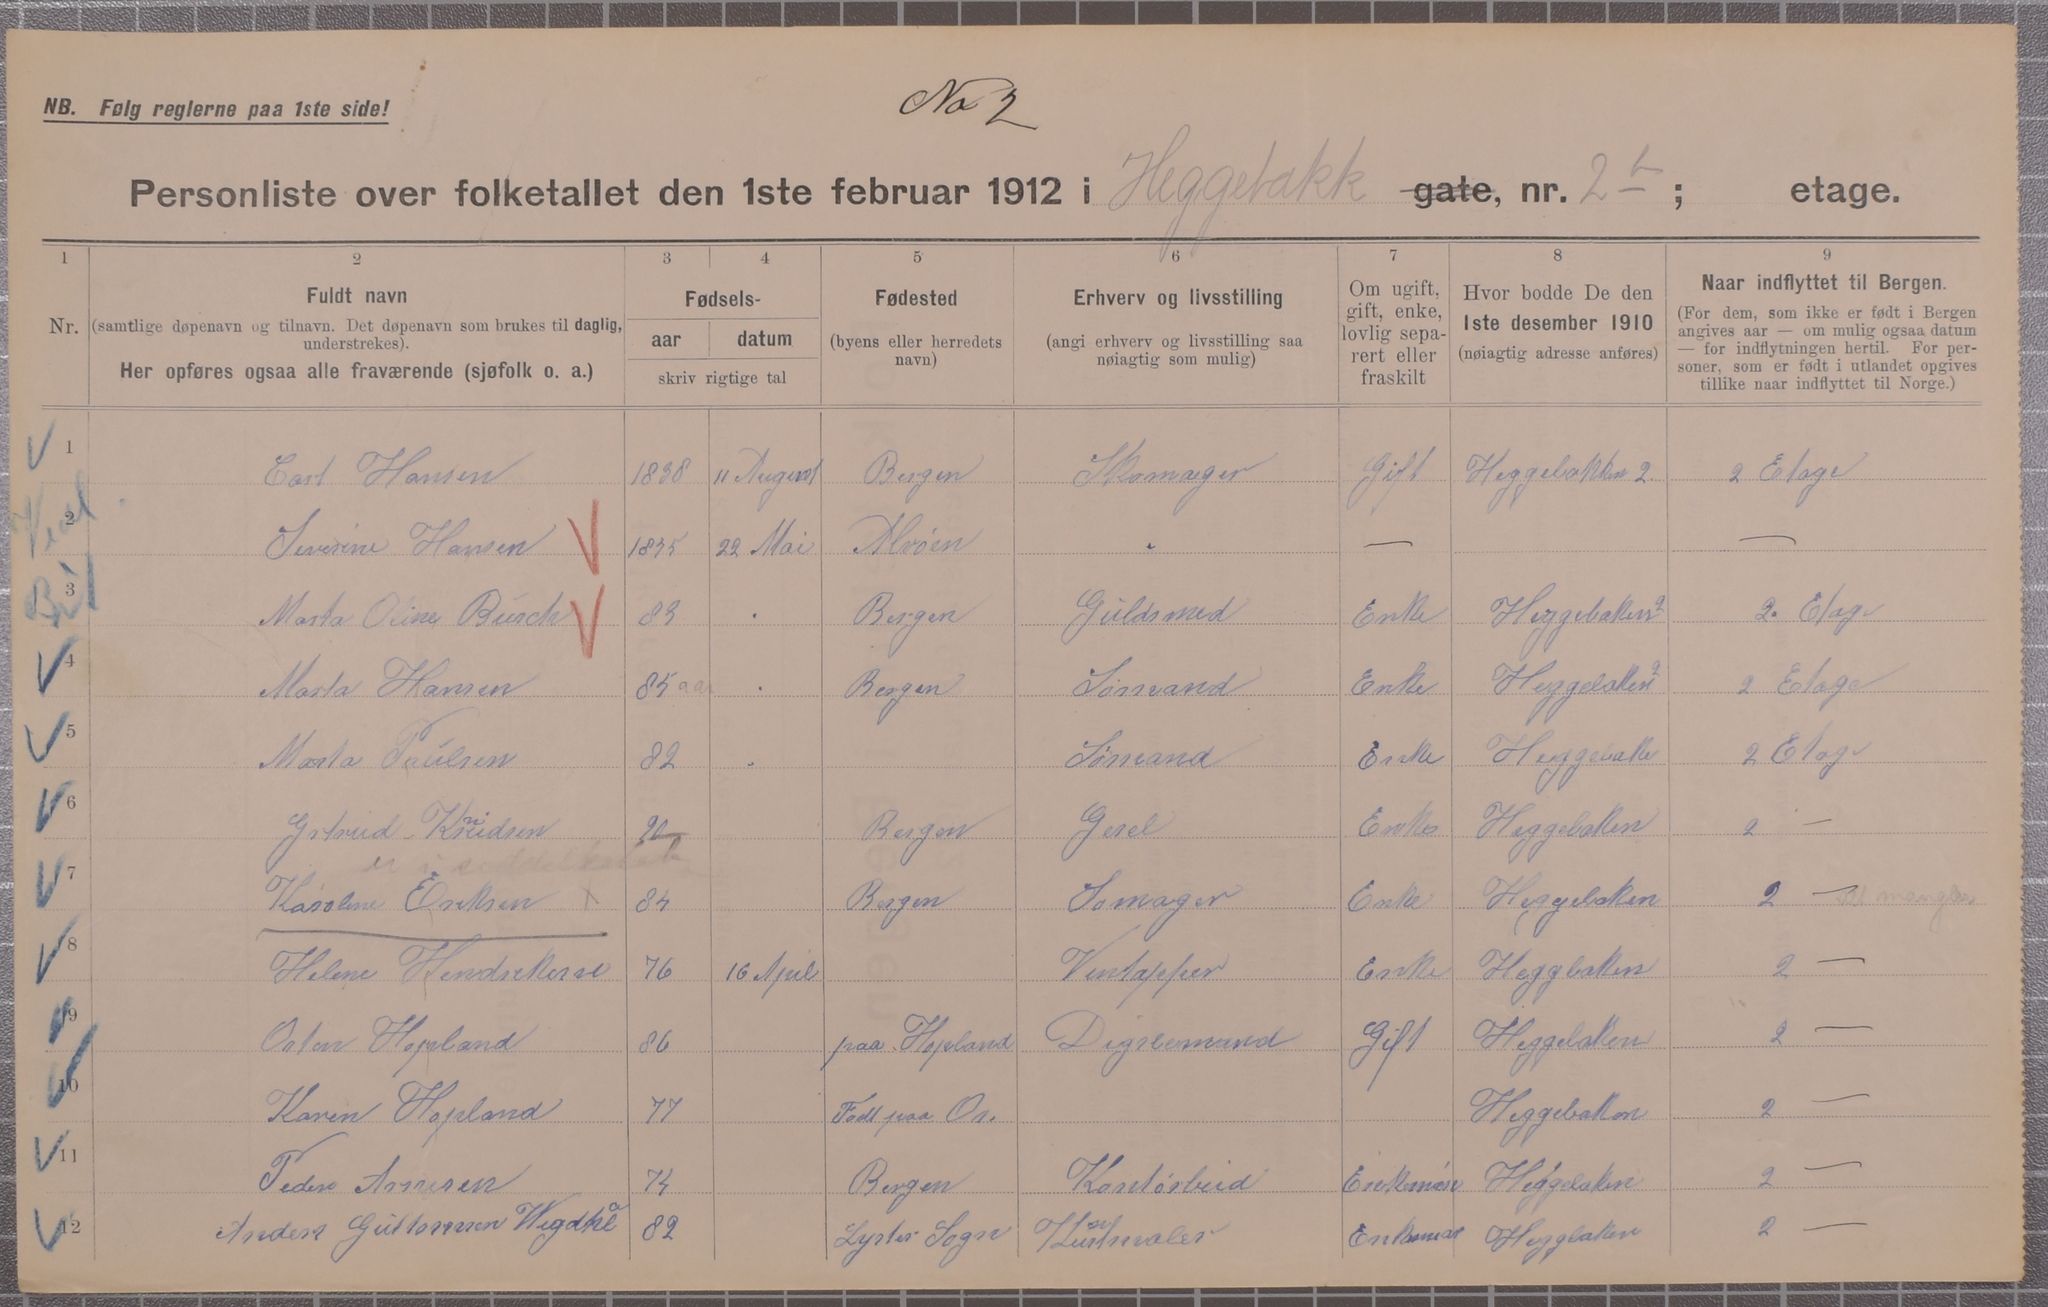 No 2
NB. Følg reglerne paa 1ste side!
Personliste over folketallet den 1ste februar 1912 i Heggebakk gate, nr. 2 b ; etage.
1 2 3 4 5 6 7 8 9
Nr.
Fuldt navn
(samtlige døpenavn og tilnavn. Det døpenavn som brukes til daglig,
understrekes).
Her opføres ogsaa alle fraværende (sjøfolk o. a.)
Fødsels-
aar datum
skriv rigtige tal
Fødested
(byens eller herredets
navn)
Erhverv og livsstilling
(angi erhverv og livsstilling saa
nøiagtig som mulig)
Om ugift,
gift, enke,
lovlig sepa-
rert eller
fraskilt
Hvor bodde De den
1ste desember 1910
(nøiagtig adresse anføres)
Naar indflyttet til Bergen.
(For dem, som ikke er født i Bergen
angives aar — om mulig ogsaa datum
— for indflytningen hertil. For per-
soner, som er født i utlandet opgives
tillike naar indflyttet til Norge.)
1 Carl Hansen 1838 11 August Bergen Skomager Gift Heggebakken 2 2 Etage
2 Severine Hansen 1835 22 Mai Alvöen " — —
3 Marta Oline Busch 83 . Bergen Guldsmed Enke Heggebaken 2 2. Etage
4 Marta Hansen 85 aar . Bergen Sömand Enke Heggebaken 2 2 Etage
5 Marta Paulsen 82 . Sömand Enke Heggebake 2 Etage
6 Knudsen 90 Bergen Gesel Enke Heggebaken 2 —
er i
7 Karoline Eriksen x 84 Bergen Enke Heggebaken 2 —
8 Helene 76 16 April Vintapper Enke Heggbaken 2 —
9 Hopland 86 paa Hopland Gift Heggebaken 2 —
10 Karen Hopland 77 Födt paa Os. Heggebaken 2 —
11 Peder 74 Bergen Enkeman Heggebaken 2 —
12 Anders Guttormsen 82 Lyster Sogn Enkeman Heggbaken 2 —